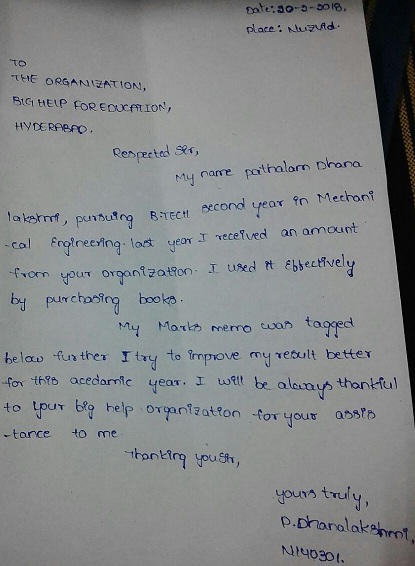 Date: 20-2-2018,
place: Nuzvid.
TO
THE ORGANIZATION,
BIG HELP FOR EDUCATION,
HYDERABAD.
Respected Sir,
My name paithalam Dhana
lakshmi, pursuing B.TECH second year in Mechani
-cal Engineering. last year I received an amount
from your organization. I used it Effectively
by purchasing books.
My Marks memo was tagged
below further I try to improve my result better
for this acedamic year. I will be always thankful
to your big help organization for your assis
-tance to me
Thanking you sir,
yours truly,
P. Dhanalakshmi,
N140301.